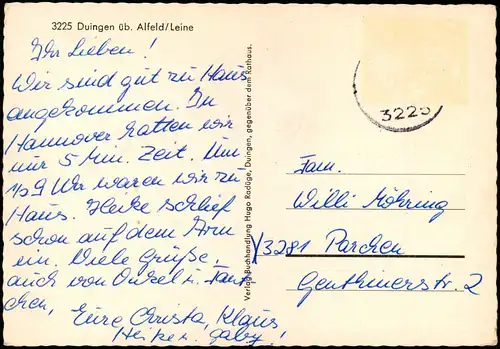 3225 Duingen üb. Alfeld/Leine
Ihr Lieben!
Wir sind gut zu Haus
angekommen. In
Hannover hatten wir
nur 5 Min. Zeit. Um
1/2 9 Uhr waren wir zu
Haus. Heike schlief
schon auf dem Arm
ein. Viele Grüße,
auch von Onkel u. Tant
chen, Eure Christa, Klaus
Heike u. Gaby!
Verlag: Buchhandlung Hugo Radüge, Duingen, gegenüber dem Rathaus.
3225
Fam.
Willi Möhring
3281 Parchen
Genthinerstr. 2